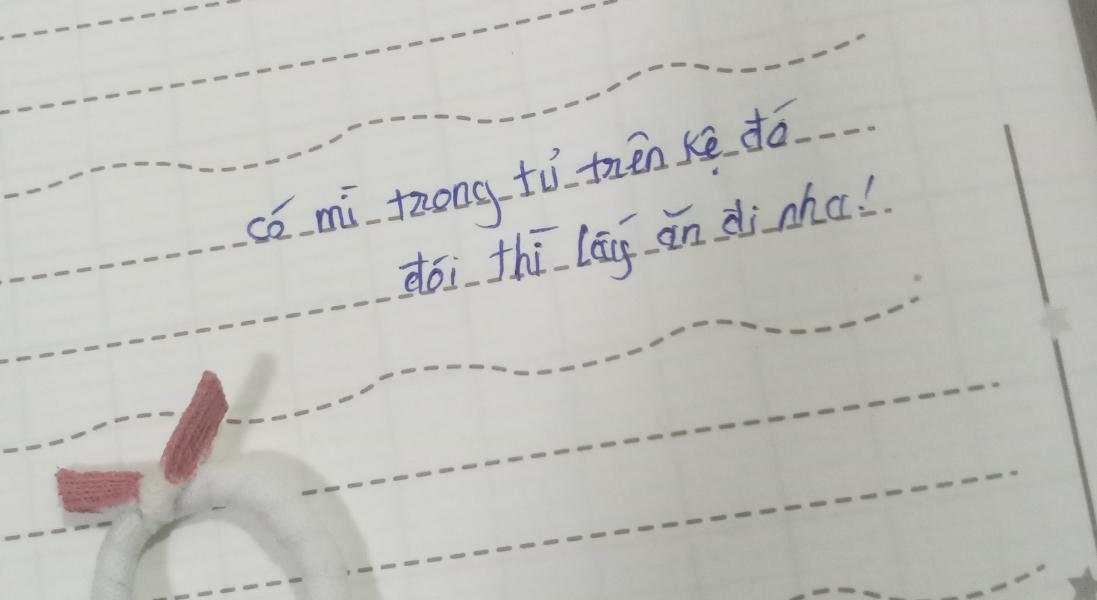 có mì trong tủ trên kệ đó
đói thì lấy ăn đi nha!